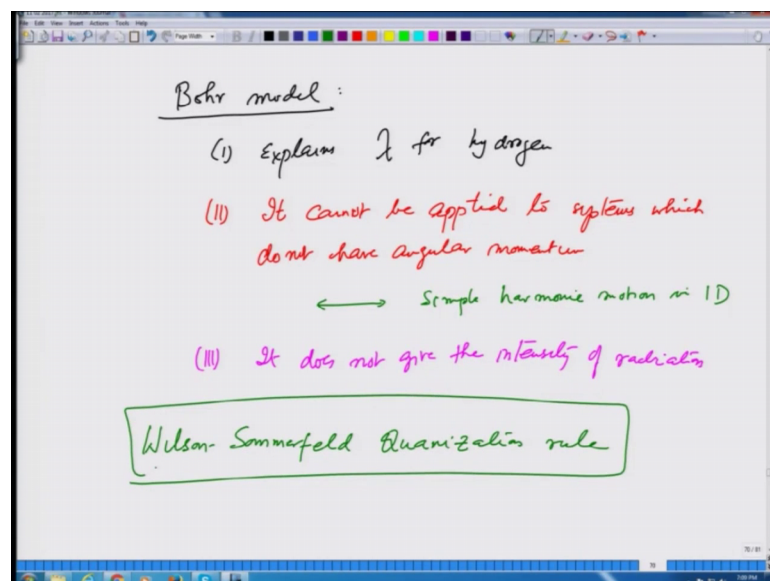 Edit View Insert Actions Tools Help
Page Width
Bohr model :
(I) Explains λ for hydrogen
(II) It cannot be applied to systems which
do not have angular momentum
Simple harmonic motion in 1D
(III) It does not give the intensity of radiation
Wilson-Sommerfeld Quanization rule
70 / 81
70
7:09 PM